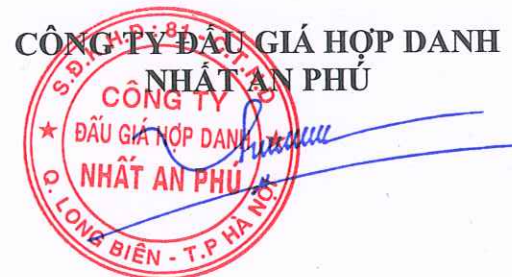 CÔNG TY ĐẤU GIÁ HỢP DANH
NHẤT AN PHÚ
CÔNG TY
ĐẤU GIÁ HỢP DANH
NHẤT AN PHÚ
Q. LONG BIÊN - T.P HÀ NỘI